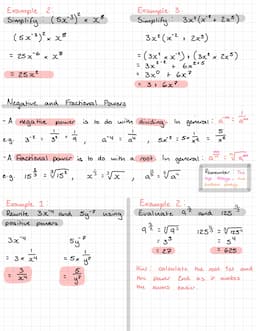 Example 2:
Simplify (5x⁻³)² × x⁸
(5x⁻³)² × x⁸
= 25x⁻⁶ × x⁸
= 25x²
Example 3:
Simplify: 3x²(x⁻² + 2x⁵)
3x²(x⁻² + 2x⁵)
= (3x² × x⁻²) + (3x² × 2x⁵)
= 3x²⁻² + 6x²⁺⁵
= 3x⁰ + 6x⁷
= 3 + 6x⁷
Negative and Fractional Powers
- A negative power is to do with dividing. In general: a⁻ᵐ = 1/aᵐ
e.g. 3⁻² = 1/3² = 1/9, a⁻⁴ = 1/a⁴, 5x⁻³ = 5 × 1/x³ = 5/x³
- A fractional power is to do with a root. In general:
Remember: The
Example 1:
Rewrite 3x⁻⁴ and 5y⁻² using
positive powers.
3x⁻⁴
= 3 × 1/x⁴
= 3/x⁴
5y⁻²
= 5 × 1/y²
= 5/y²
Example 2:
Evaluate 9^(3/2) and 125^(4/3)
9^(3/2) = (√9)³
= 3³
= 27
125^(4/3) = (∛125)⁴
= 5⁴
= 625
Hint: calculate the root 1st and
the power 2nd as it makes
the sums easier.